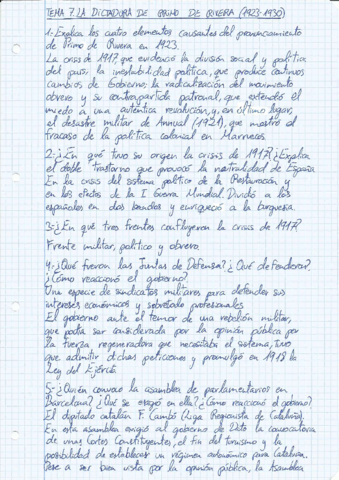 TEMA 7. LA DICTADURA DE PRIMO DE RIVERA (1923-1930)
1-Explica los cuatro elementos causantes del pronunciamiento
de Primo de Rivera en 1923.
La crisis de 1917, que evidenció la división social y política
del país; la inestabilidad política, que produce continuos
cambios de Gobierno; la radicalización del movimiento
obrero y su contrapartida patronal, que extendió el
miedo a una auténtica revolución; y, en último lugar,
el desastre militar de Annual (1921), que mostró el
fracaso de la política colonial en Marruecos.
2-¿En qué tuvo su origen la crisis de 1917? ¿Explica
el doble trastorno que provocó la neutralidad de España
En la crisis del sistema político de la Restauración y
en los efectos de la I Guerra Mundial. Dividió a los
españoles en dos bandos y enriqueció a la burguesía.
3-¿En qué tres frentes confluyeron la crisis de 1917?
Frente militar, político y obrero.
4-¿Qué fueron las Juntas de Defensa? ¿Qué defendieron?
¿Cómo reaccionó el gobierno?
Una especie de sindicatos militares para defender sus
intereses económicos y sobretodo profesionales.
El gobierno ante el temor de una rebelión militar,
que podía ser considerada por la opinión pública por
la fuerza regeneradora que necesitaba el sistema, tuvo
que admitir dichas peticiones y promulgó en 1918 la
Ley del Ejército.
5-¿Quién convocó la asamblea de parlamentarios en
Barcelona? ¿Qué se exigió en ella? ¿Cómo reaccionó el gobierno?
El diputado catalán F. Cambó (Liga Regionista de Cataluña).
En esta asamblea exigió al gobierno de Dato la convocatoria
de unas Cortes Constituyentes, el fin del turnismo y la
posibilidad de establecer un régimen autonómico para Cataluña.
Pese a ser bien vista por la opinión pública, la Asamblea